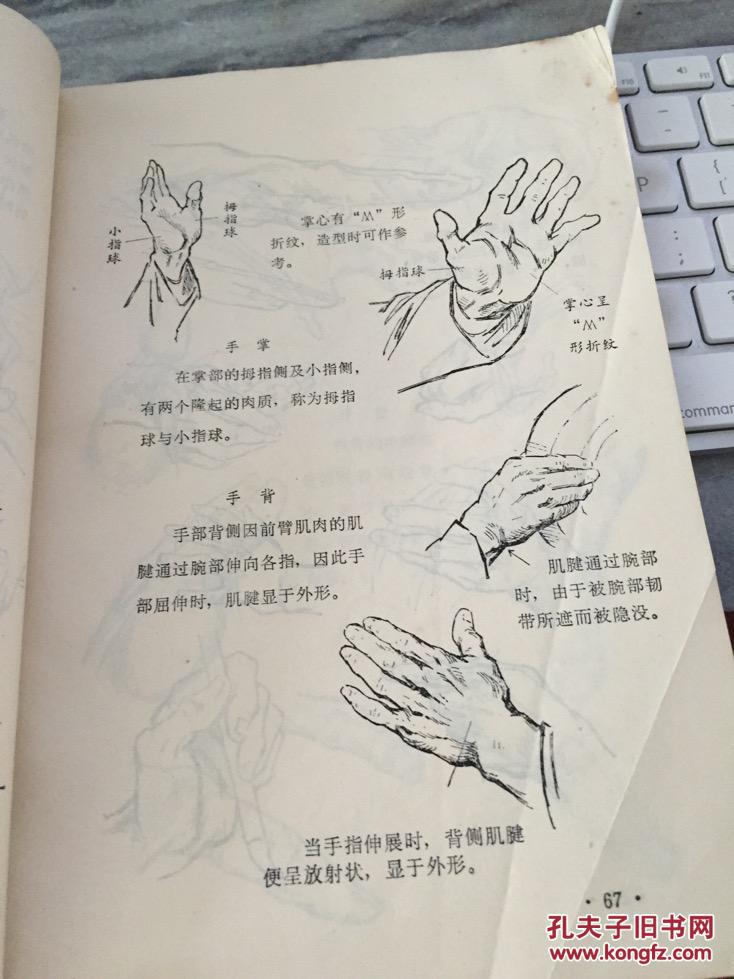 拇指球
小指球
掌心有“ʍ”形
折纹，造型时可作参
考。
拇指球
掌心呈
“ʍ”
形折纹
手 掌
在掌部的拇指侧及小指侧，
有两个隆起的肉质，称为拇指
球与小指球。
手 背
手部背侧因前臂肌肉的肌
腱通过腕部伸向各指，因此手
部屈伸时，肌腱显于外形。
肌腱通过腕部
时，由于被腕部韧
带所遮而被隐没。
当手指伸展时，背侧肌腱
便呈放射状，显于外形。
·67·
F10
F11
P
{
[
+
=
?
command
孔夫子旧书网
www.kongfz.com